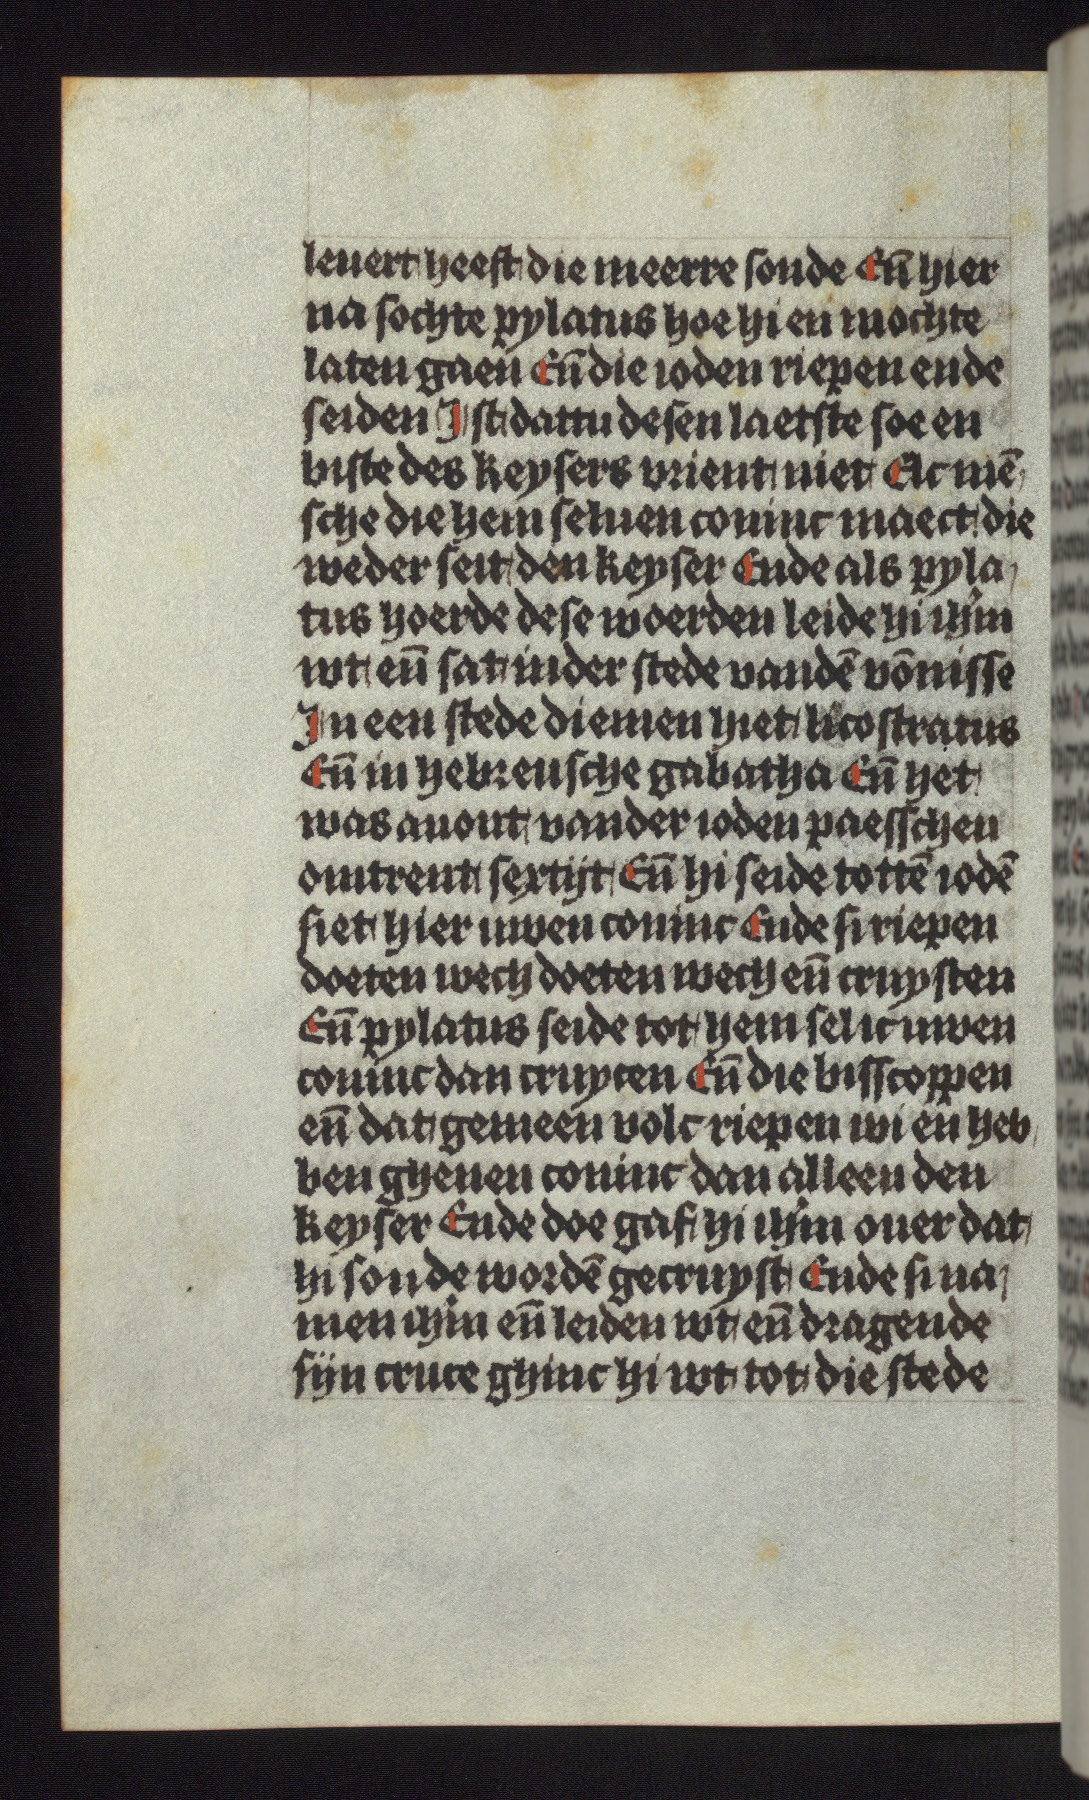 leuert heeft die meerre sonde Eñ hier
na sochte pylatus hoe hi en mochte
laten gaen Eñ die ioden riepen ende
seiden Ist dattu desen laetste soe en
biste des keysers vrient niet Elc mē
sche die hem seluen coninc maect die
weder seit den keyser Ende als pyla
tus hoerde dese woerden leide hi ihm̄
wt eñ sat in der stede vandē vōnisse
In een stede diemen hiet licostratus
Eñ in hebreusche gabatha Eñ het
was auont vander ioden paesschen
omtrent sextijt Eñ hi seide tottē iodē
siet hier uwen coninc Ende si riepen
doeten wech doeten wech eñ cruysten
Eñ pylatus seide tot hem sel ic uwen
coninc dan crucen Eñ die bisscoppen
eñ dat gemeen volc riepen wi en heb
ben ghenen coninc dan alleen den
keyser Ende doe gaf hi ihm̄ ouer dat
hi soude wordē gecruyst Ende si na
men ihm̄ eñ leiden wt eñ dragende
sijn cruce ghinc hi wt tot die stede